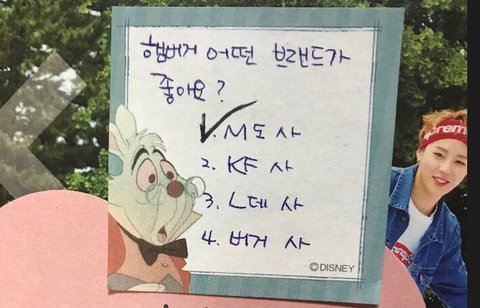 햄버거 어떤 브랜드가
좋아요?
1. M도 사
2. KF 사
3. L데 사
4. 버거 사
©DISNEY
Supreme